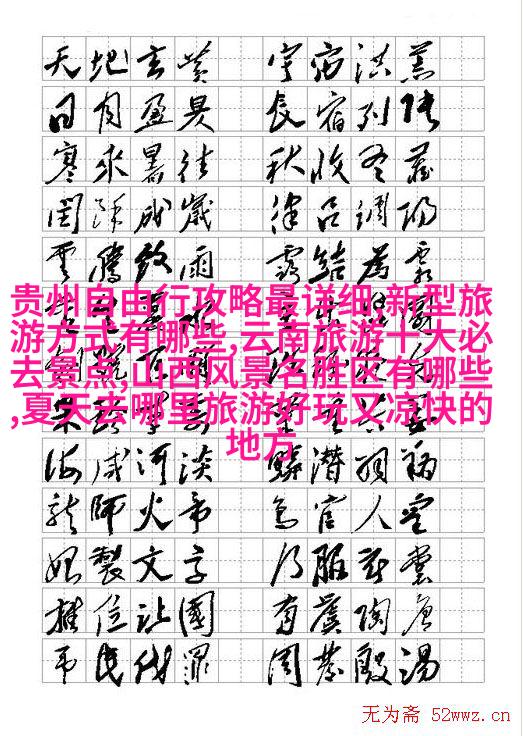 天地玄黄 宇宙洪荒
日月盈昃 辰宿列张
寒來暑往 秋收冬藏
閏餘成歲 律吕調陽
雲騰致雨 露結為霜
贵州自由行攻略最详细,新型旅
游方式有哪些,云南旅游十大必
去景点,山西风景名胜区有哪些
,夏天去哪里旅游好玩又凉快的
地方
海咸河淡 鳞潜羽翔
龍師火帝 鸟官人皇
始製文字 乃服衣裳
推位让國 有虞陶唐
吊民伐罪 周發殷湯
无为斋 52wwz.cn